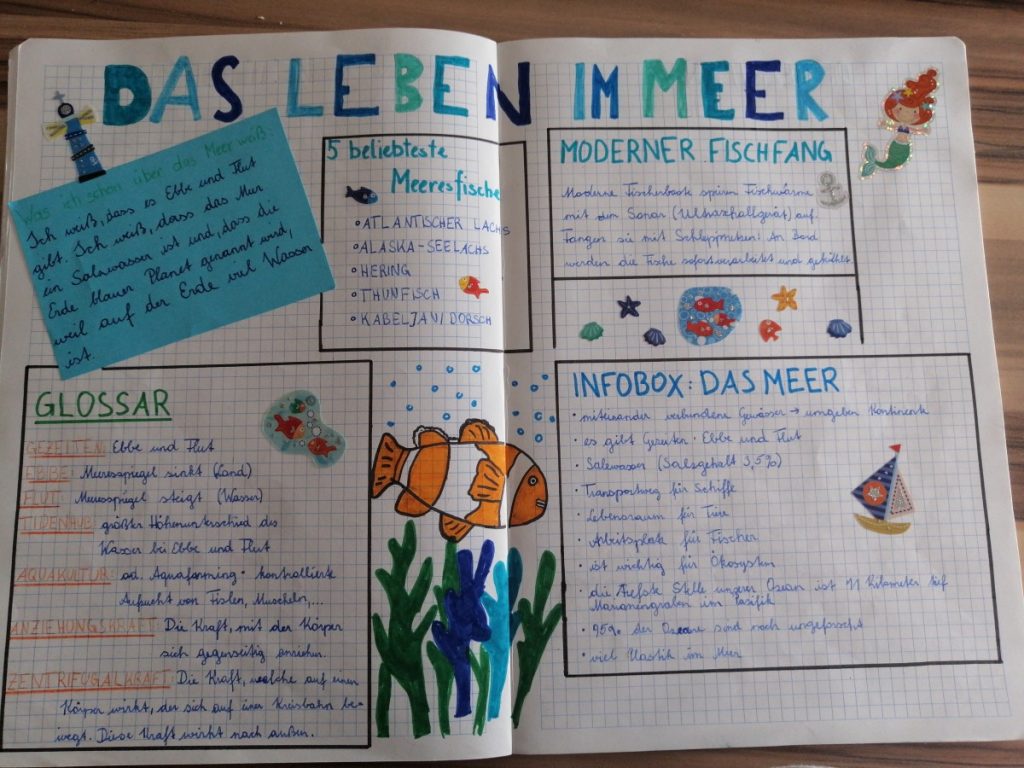 DAS LEBEN IM MEER
Was ich schon über das Meer weiß:
Ich weiß, dass es Ebbe und Flut
gibt. Ich weiß, dass das Meer
ein Salzwasser ist und, dass die
Erde blauer Planet genannt wird,
weil auf der Erde viel Wasser
ist.
5 beliebteste
Meeresfische
ATLANTISCHER LACHS
ALASKA-SEELACHS
HERING
THUNFISCH
KABELJAU/DORSCH
MODERNER FISCHFANG
Moderne Fischerboote spüren Fischwärme
mit dem Sonar (Ultraschallgerät) auf.
Fangen sie mit Schleppnetzen! An Bord
werden die Fische sofort verarbeitet und gekühlt
GLOSSAR
GEZEITEN: Ebbe und Flut
EBBE: Meeresspiegel sinkt (Land)
FLUT: Meeresspiegel steigt (Wasser)
TIDENHUB: größter Höhenunterschied des
Wasser bei Ebbe und Flut
AQUAKULTUR: od. Aquafarming · kontrollierte
Aufzucht von Fischen, Muscheln,...
ANZIEHUNGSKRAFT: Die Kraft, mit der Körper
sich gegenseitig anziehen.
ZENTRIFUGALKRAFT: Die Kraft, welche auf einen
Körper wirkt, der sich auf einer Kreisbahn be-
wegt. Diese Kraft wirkt nach außen.
INFOBOX: DAS MEER
· miteinander verbundene Gewässer → umgeben Kontinente
· es gibt Gezeiten · Ebbe und Flut
· Salzwasser (Salzgehalt 3,5%)
· Transportweg für Schiffe
· Lebensraum für Tiere
· Arbeitsplatz für Fischer
· ist wichtig für Ökosystem
· die tiefste Stelle unserer Ozean ist 11 Kilometer tief
Marianengraben im Pazifik
· 95% der Ozeane sind noch unerforscht
· viel Plastik im Meer